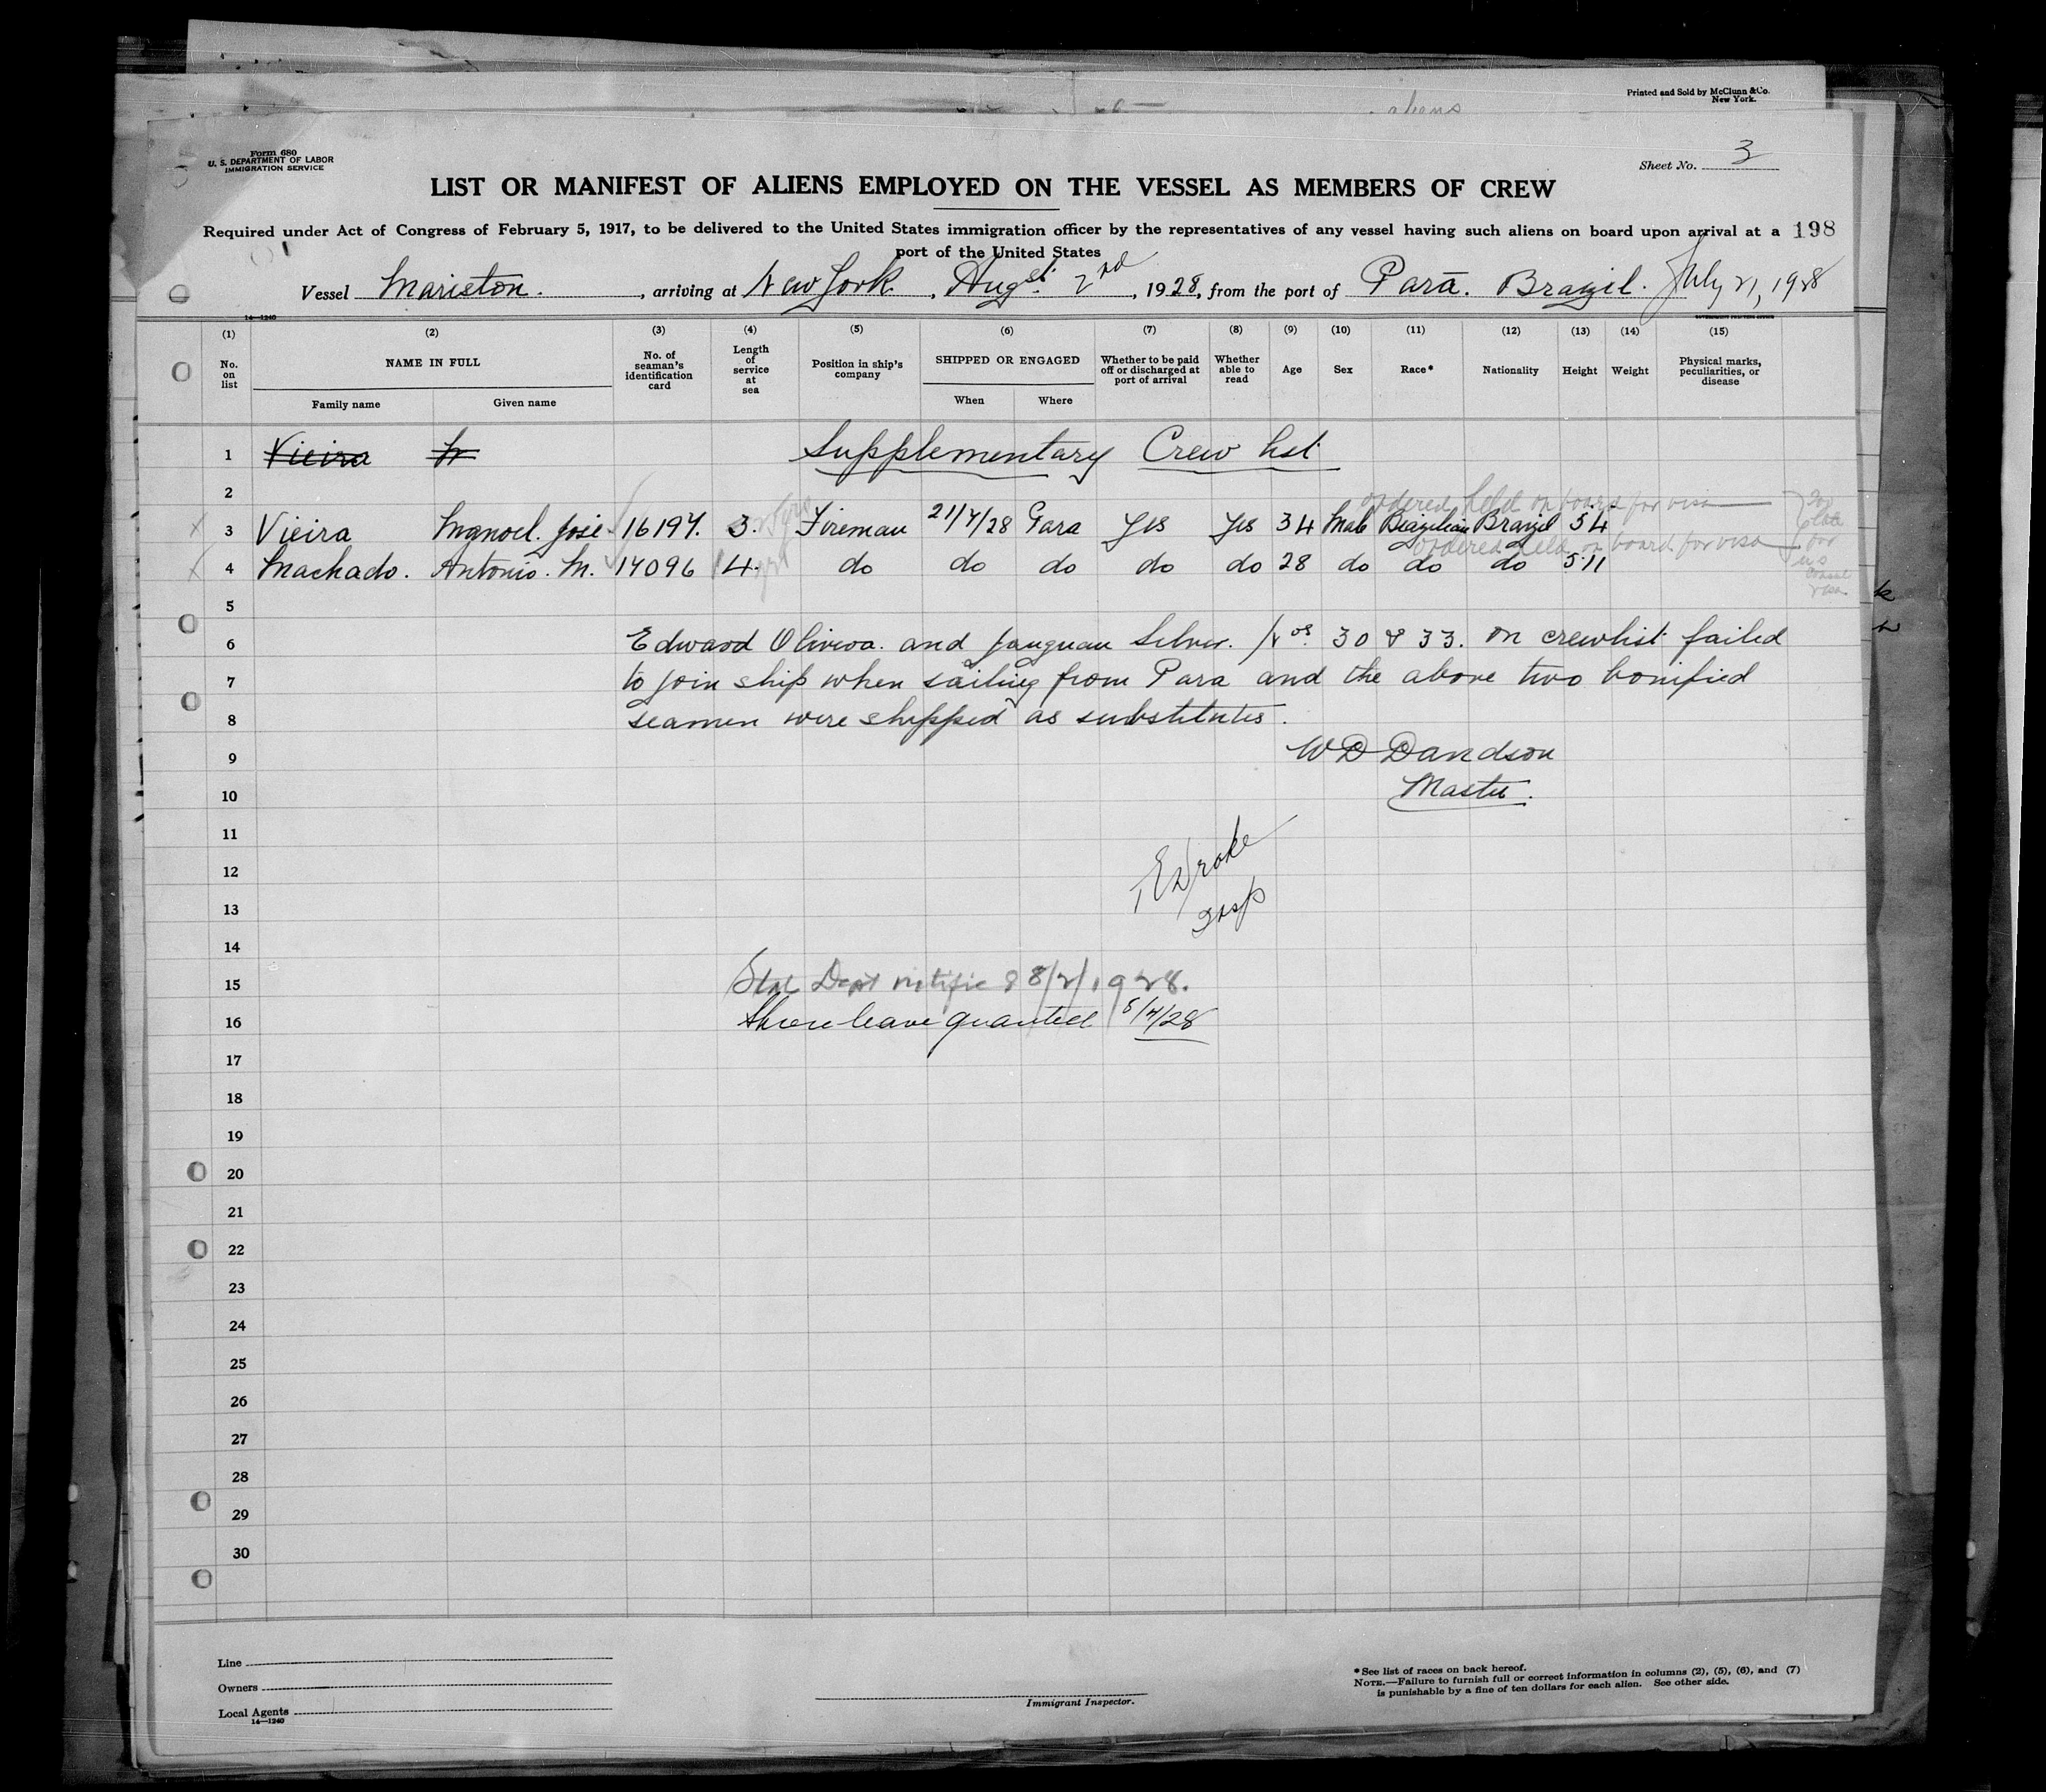 Printed and Sold by McClunn & Co.
New York.
aliens
Form 680
U. S. DEPARTMENT OF LABOR
IMMIGRATION SERVICE
Sheet No. 3
LIST OR MANIFEST OF ALIENS EMPLOYED ON THE VESSEL AS MEMBERS OF CREW
Required under Act of Congress of February 5, 1917, to be delivered to the United States immigration officer by the representatives of any vessel having such aliens on board upon arrival at a 198
port of the United States
Vessel Mariston. , arriving at New York , Augst. 2nd , 1928, from the port of Para. Brazil. July 21, 1928
14—1240
(1) (2) (3) (4) (5) (6) (7) (8) (9) (10) (11) (12) (13) (14) (15)
No. on list NAME IN FULL No. of seaman's identification card Length of service at sea Position in ship's company SHIPPED OR ENGAGED Whether to be paid off or discharged at port of arrival Whether able to read Age Sex Race* Nationality Height Weight Physical marks, peculiarities, or disease
Family name Given name When Where
1 Vieira Supplementary Crew list
2
ordered held on board for visa
3 Vieira Manoel. José 16197. 3. Fireman 21/7/28 Para Yes Yes 34 Male Brazilian Brazil 5 4
ordered held on board for visa
4 Machado. Antonio. M. 17096 4. do do do do do 28 do do do 5·11
Too late for U S Consul visa
5
6 Edward Oliveira. and Silver. Nos. 30 & 33. on crewlist failed
7 to join ship when sailing from Para and the above two bonified
8 seamen were shipped as substitutes.
9 W D Davidson
10 Master.
11
12 Drake
13 Insp
14
15 State Dept notified 8/2/1928.
16 Shore leave granted 8/4/28
17
18
19
20
21
22
23
24
25
26
27
28
29
30
Line
Owners
Local Agents
14—1240
Immigrant Inspector.
*See list of races on back hereof.
NOTE.—Failure to furnish full or correct information in columns (2), (5), (6), and (7)
is punishable by a fine of ten dollars for each alien. See other side.